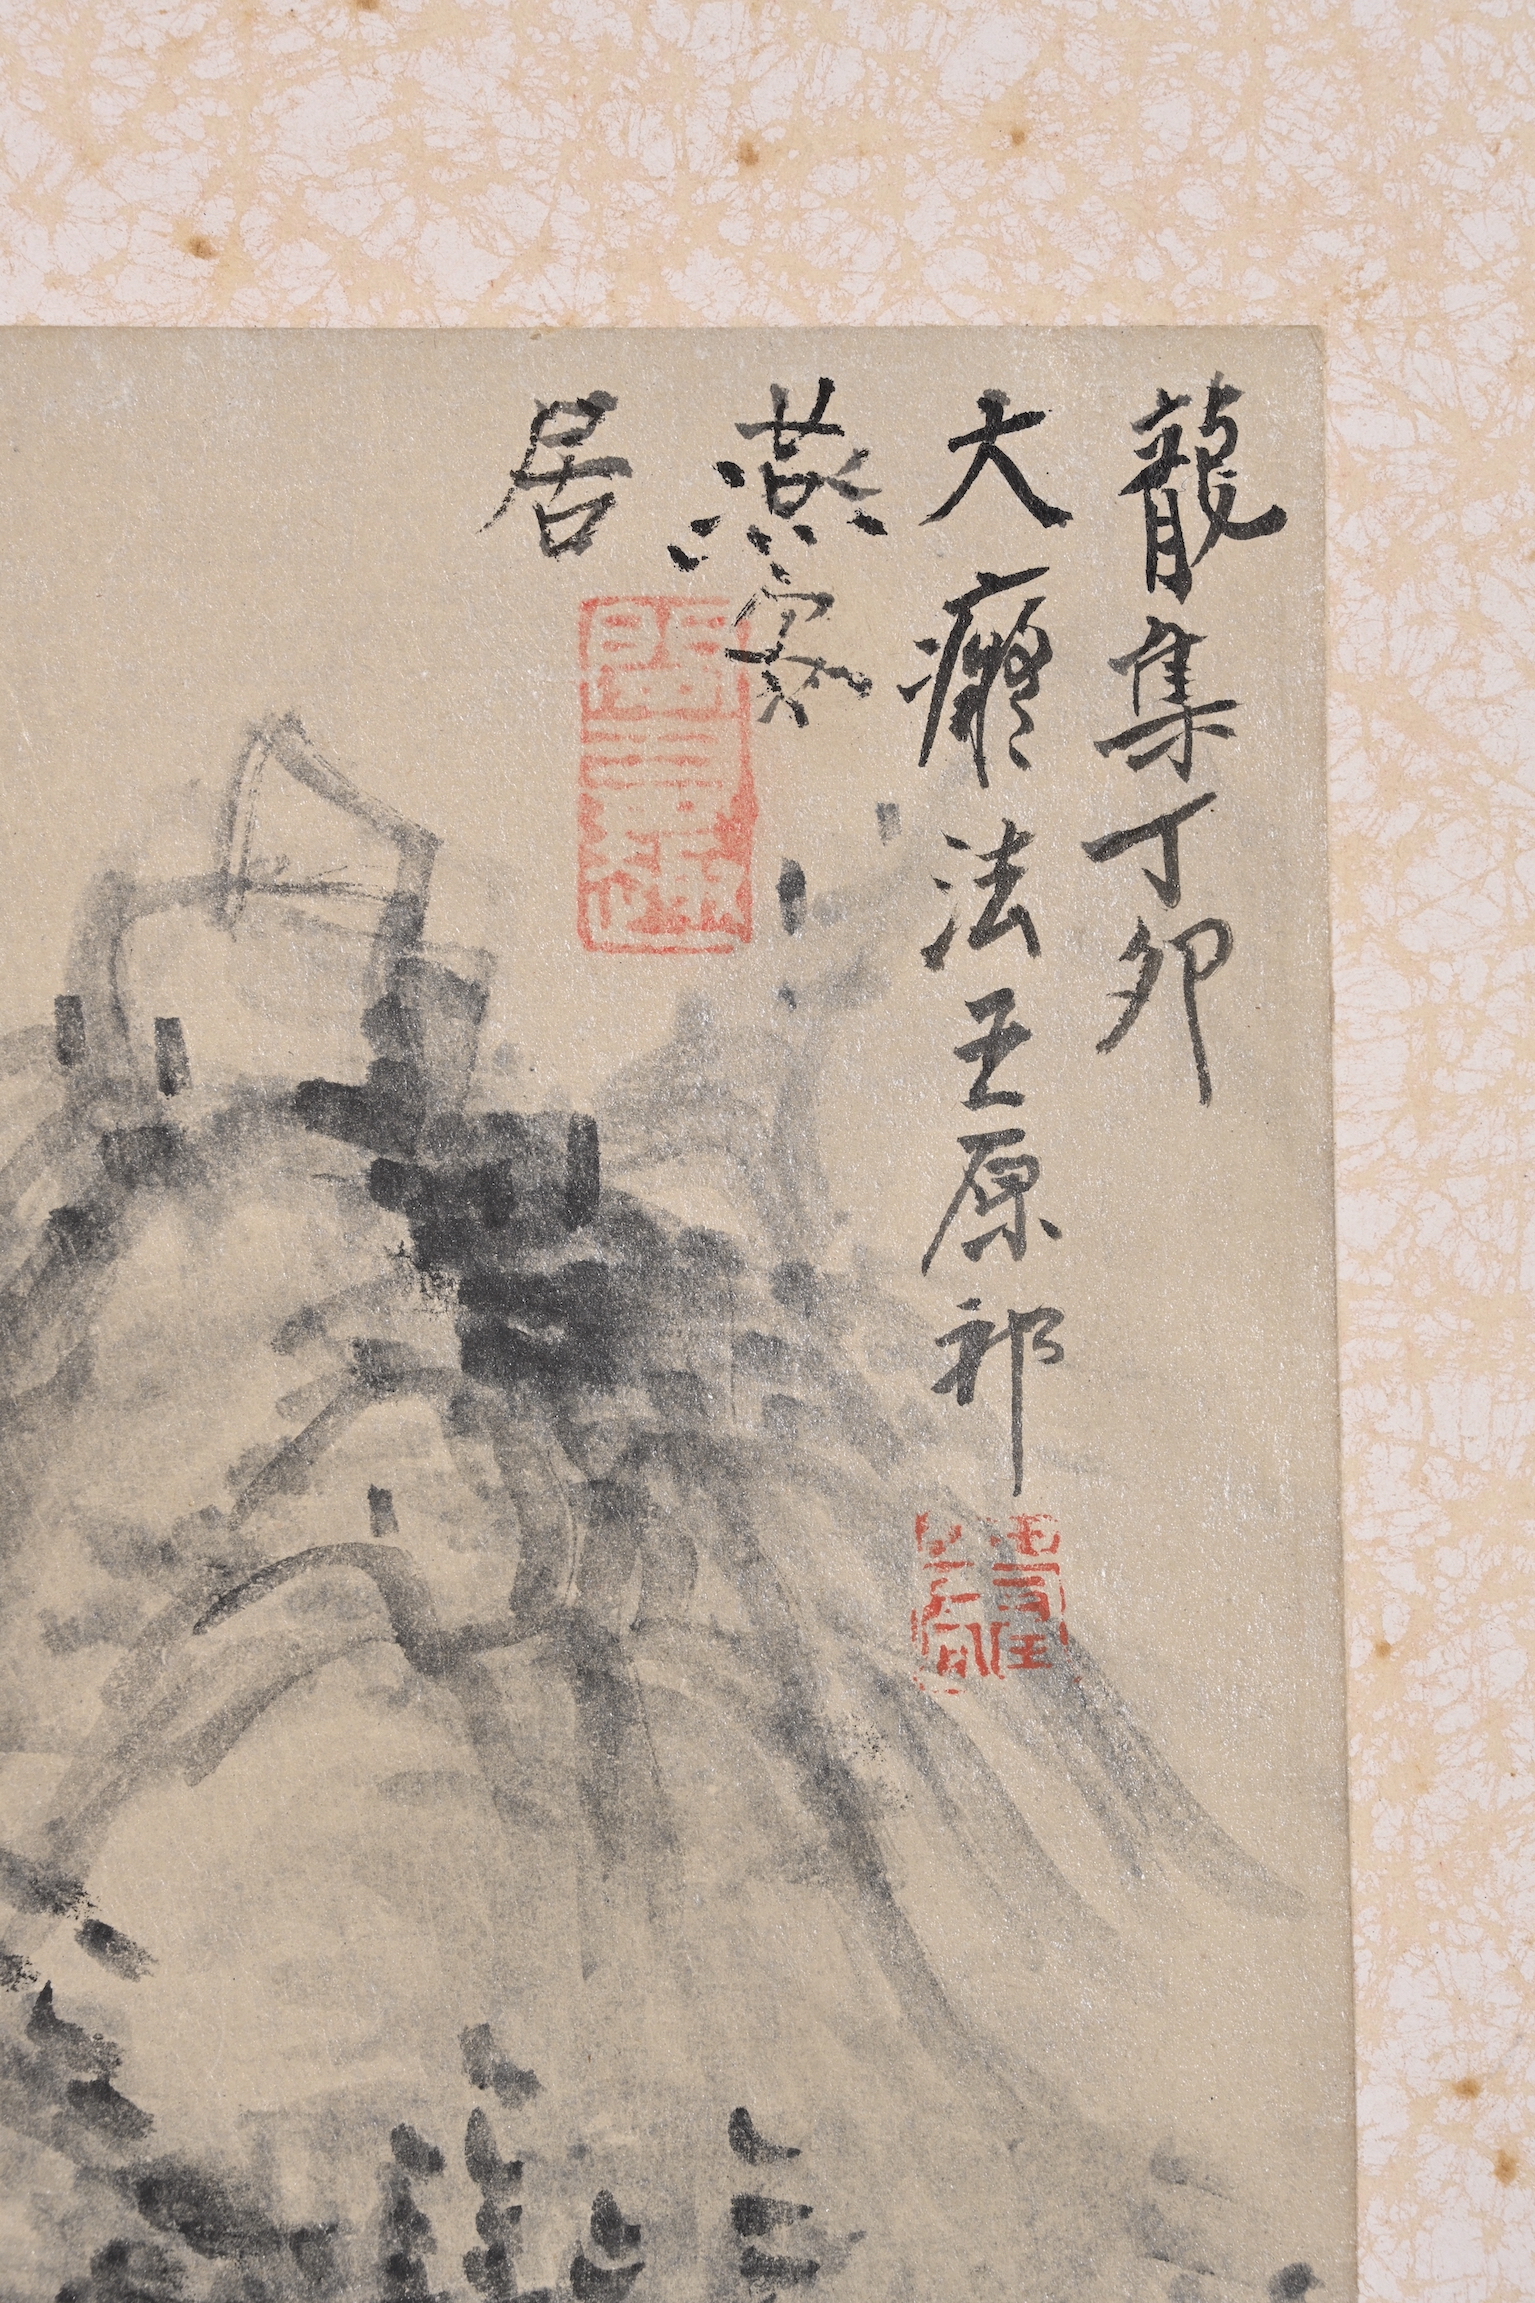 龍集丁卯
大癡法王原祁
燕
居